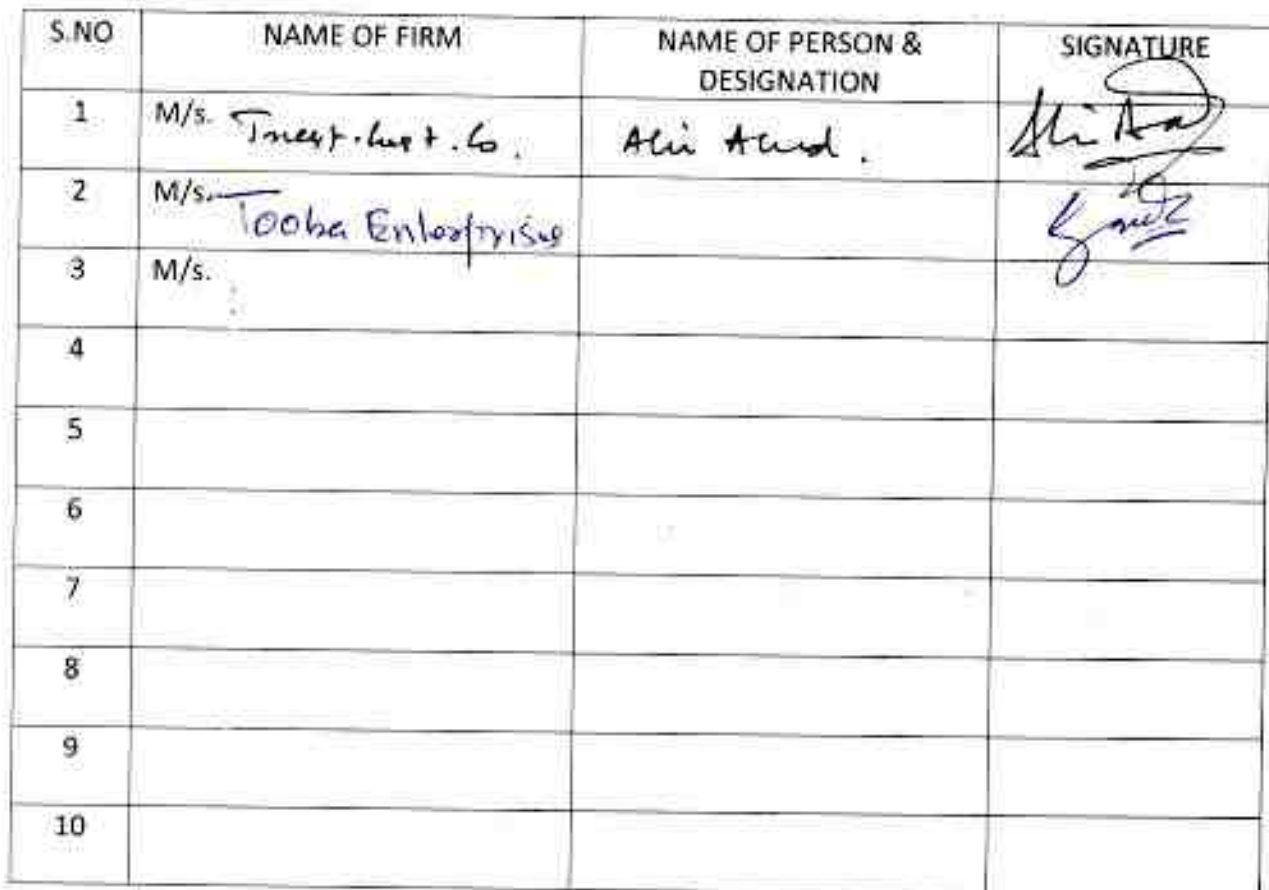 S.NO NAME OF FIRM NAME OF PERSON & DESIGNATION SIGNATURE
1 M/s. Co. Ali
2 M/s. Tooba Enterprise
3 M/s.
4
5
6
7
8
9
10